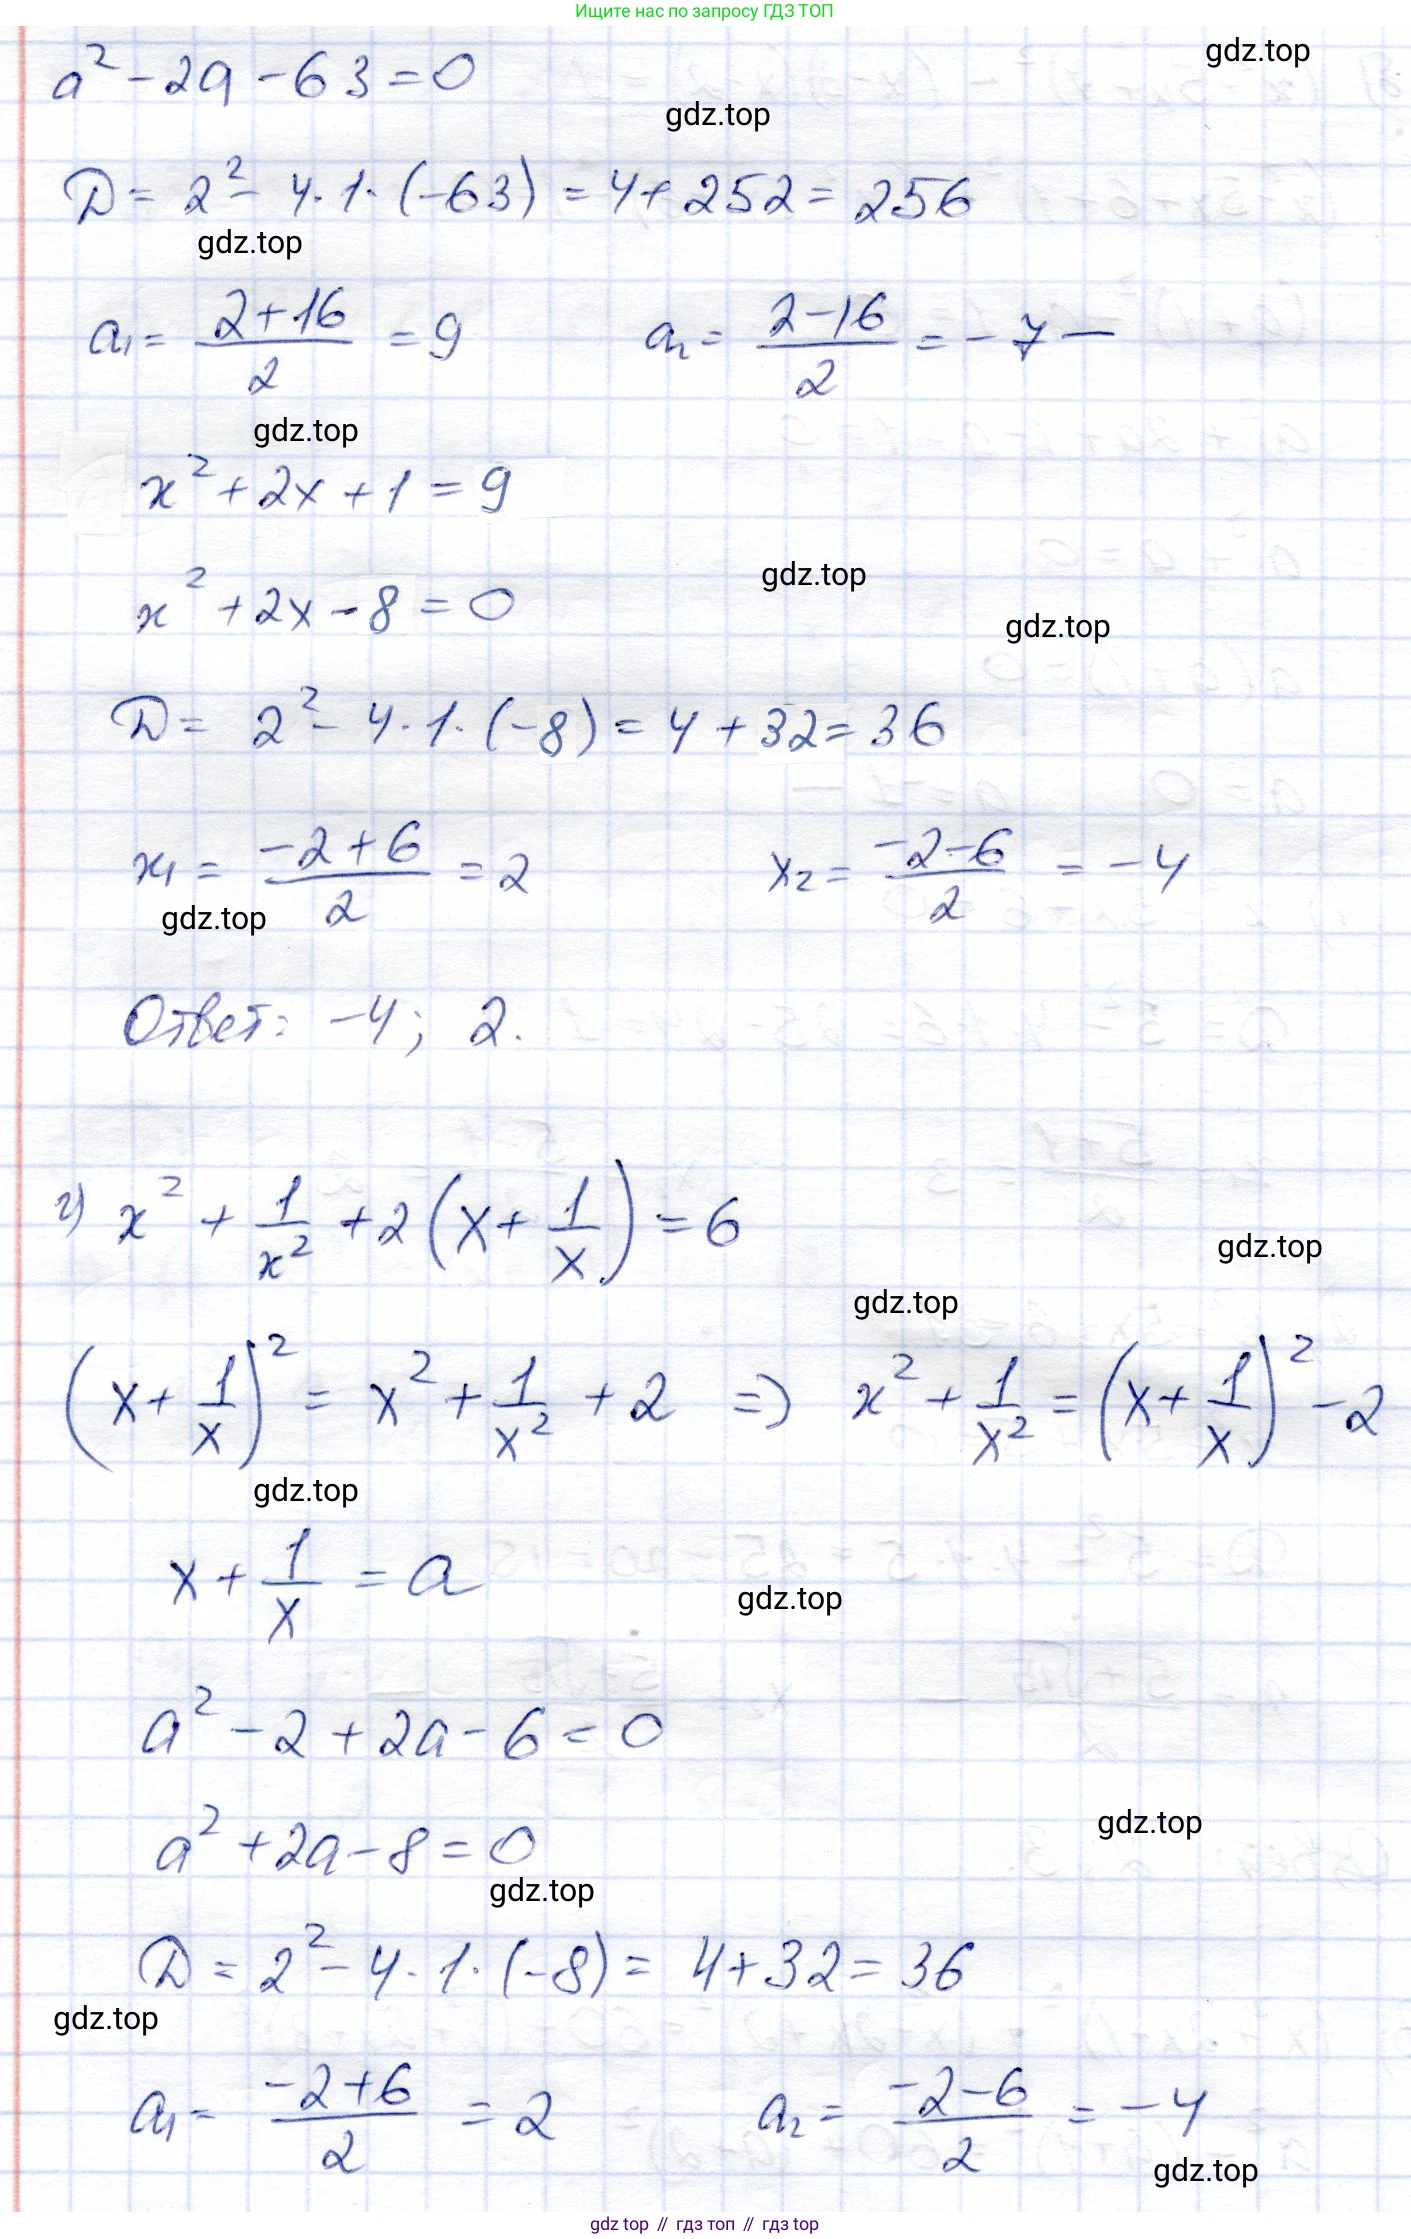 Ищите нас по запросу ГДЗ ТОП
gdz.top
a² - 2a - 63 = 0
gdz.top
D = 2² - 4·1·(-63) = 4 + 252 = 256
gdz.top
a₁ = (2+16)/2 = 9 a₂ = (2-16)/2 = -7 —
gdz.top
x² + 2x + 1 = 9
gdz.top
x² + 2x - 8 = 0
gdz.top
D = 2² - 4·1·(-8) = 4 + 32 = 36
x₁ = (-2+6)/2 = 2 x₂ = (-2-6)/2 = -4
gdz.top
Ответ: -4; 2.
г) x² + 1/x² + 2(x + 1/x) = 6
gdz.top
gdz.top
(x + 1/x)² = x² + 1/x² + 2 => x² + 1/x² = (x + 1/x)² - 2
gdz.top
x + 1/x = a
gdz.top
a² - 2 + 2a - 6 = 0
gdz.top
a² + 2a - 8 = 0
gdz.top
D = 2² - 4·1·(-8) = 4 + 32 = 36
gdz.top
a₁ = (-2+6)/2 = 2 a₂ = (-2-6)/2 = -4
gdz.top
gdz top // гдз топ // gdz top